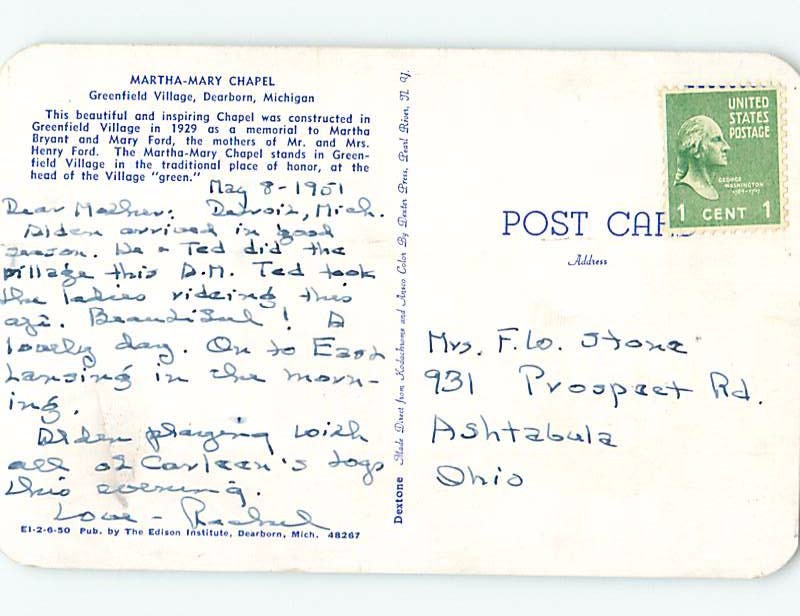 MARTHA-MARY CHAPEL
Greenfield Village, Dearborn, Michigan
This beautiful and inspiring Chapel was constructed in
Greenfield Village in 1929 as a memorial to Martha
Bryant and Mary Ford, the mothers of Mr. and Mrs.
Henry Ford. The Martha-Mary Chapel stands in Green-
field Village in the traditional place of honor, at the
head of the Village "green."
May 8-1951
Dear Mother: Detroit, Mich.
Alden arrived in good
season. We & Ted did the
village this A.M. Ted took
the ladies rideing this
aft. Beautiful! A
lovely day. On to East
Lansing in the morn-
ing.
Alden playing with
all of Carleen's togs
this evening.
Love - Rachel
EI-2-6-50 Pub. by The Edison Institute, Dearborn, Mich. 48267
Dextone Made Direct from Kodachrome and Ansco Color By Dexter Press, Pearl River, N. Y.
UNITED
STATES
POSTAGE
GEORGE
WASHINGTON
1789-1797
1 CENT 1
POST CAR
Address
Mrs. F. W. Stone
931 Prospect Rd.
Ashtabula
Ohio